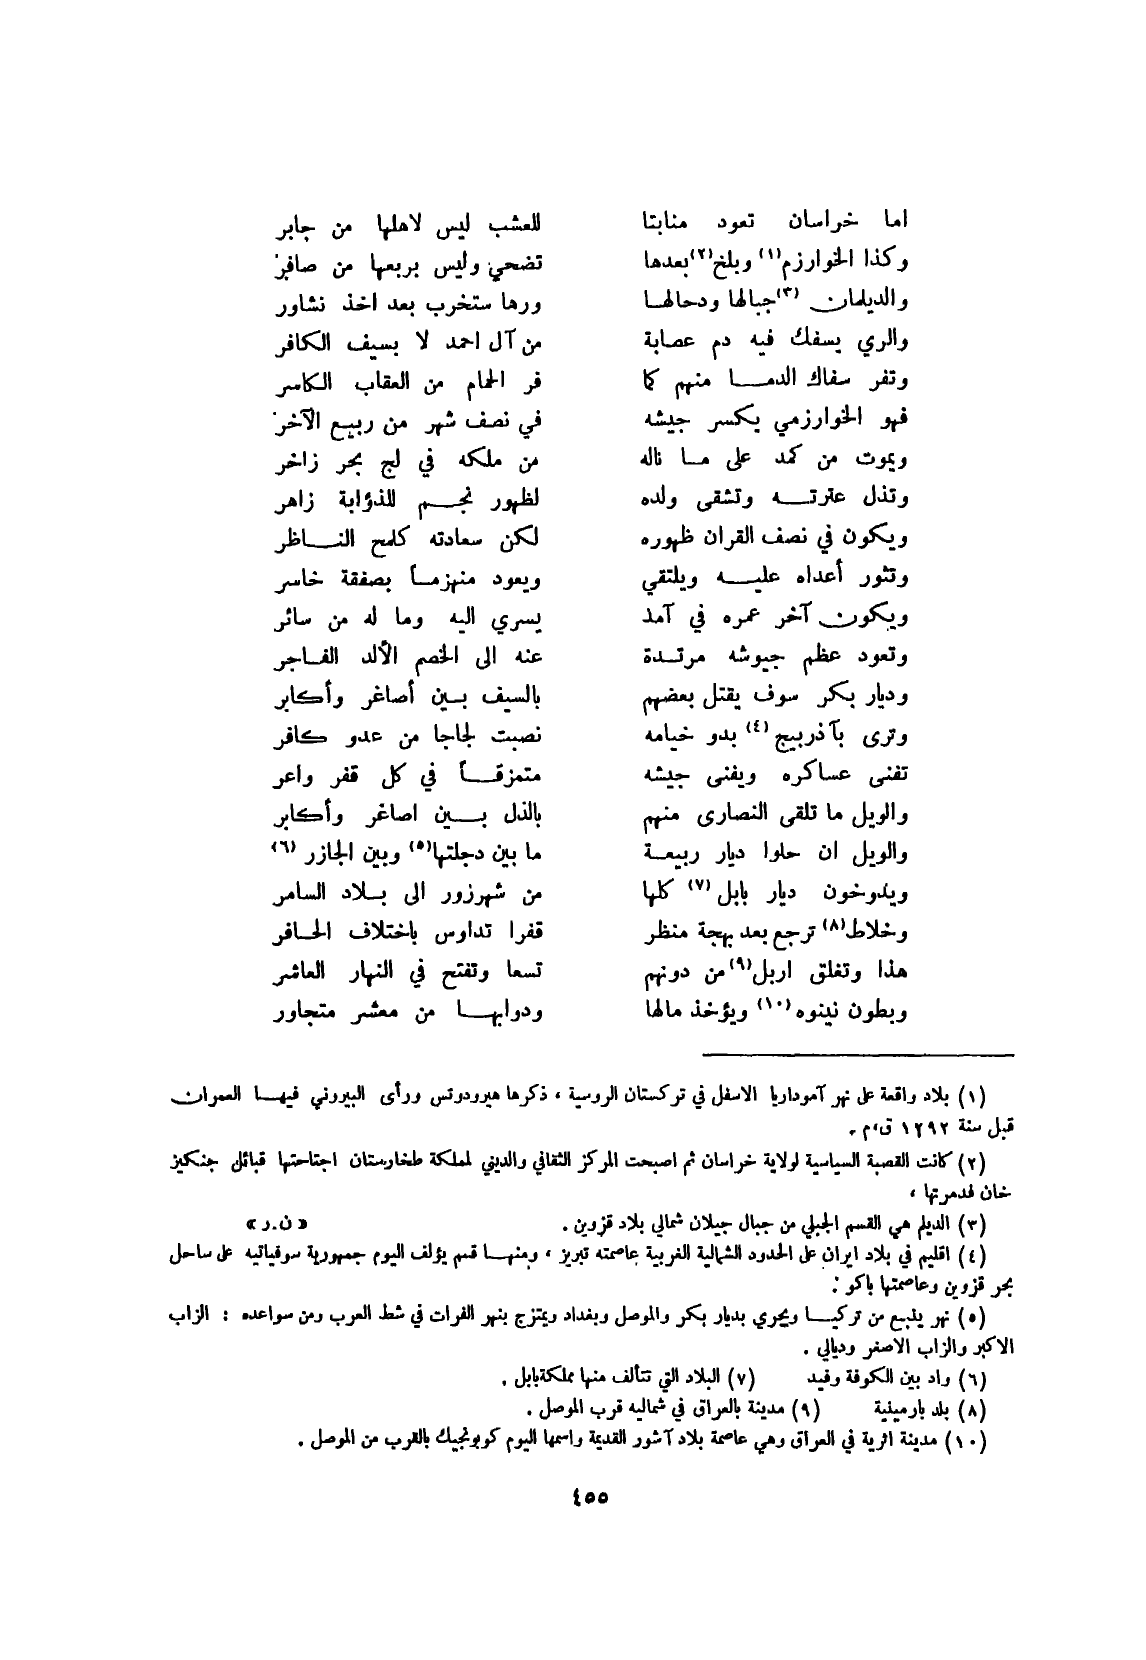 اما خراسان تعود منابتا للعشب ليس لاهلها من جابر
وكذا الخوارزم(١) وبلخ(٢) بعدها تضحي وليس بربعها من صافر
والديلمان(٣) جبالها ودحالها ورها ستخرب بعد اخذ نشاور
والري يسفك فيه دم عصابة من آل احمد لا بسيف الكافر
وتفر سفاك الدما منهم كما فر الحمام من العقاب الكاسر
فهو الخوارزمي يكسر جيشه في نصف شهر من ربيع الآخر
ويموت من كمد على ما ناله من ملكه في لج بحر زاخر
وتذل عترته وتشقى ولده لظهور نجم للذؤابة زاهر
ويكون في نصف القران ظهوره لكن سعادته كلمح الناظر
وتثور أعداه عليه ويلتقي ويعود منهزماً بصفقة خاسر
ويكون آخر عمره في آمد يسري اليه وما له من سائر
وتعود عظم جيوشه مرتدة عنه الى الخصم الألد الفاجر
وديار بكر سوف يقتل بعضهم بالسيف بين أصاغر وأكابر
وترى بآذربيج(٤) بدو خيامه نصبت لجاجا من عدو كافر
تفنى عساكره ويفنى جيشه متمزقاً في كل قفر واعر
والويل ما تلقى النصارى منهم بالذل بين اصاغر وأكابر
والويل ان حلوا ديار ربيعة ما بين دجلتها(٥) وبين الجازر (٦)
ويدوخون ديار بابل(٧) كلها من شهرزور الى بلاد السامر
وخلاط(٨) ترجع بعد بهجة منظر قفرا تداوس باختلاف الحافر
هذا وتغلق اربل(٩) من دونهم تسعا وتفتح في النهار العاشر
وبطون نينوه(١٠) ويؤخذ مالها ودوابها من معشر متجاور
(١) بلاد واقعة على نهر آموداريا الاسفل في تركستان الروسية ، ذكرها هيرودوتس ورأى البيروني فيها العمران
قبل سنة ١٢٩٢ ق.م .
(٢) كانت القصبة السياسية لولاية خراسان ثم اصبحت المركز الثقافي والديني لمملكة طخارستان اجتاحتها قبائل جنكيز
خان فدمرتها ،
(٣) الديلم هي القسم الجبلي من جبال جيلان شمالي بلاد قزوين . « ن.ر »
(٤) اقليم في بلاد ايران على الحدود الشمالية الغربية عاصمته تبريز ، ومنها قسم يؤلف اليوم جمهورية سوفياتيه على ساحل
بحر قزوين وعاصمتها باكو .
(٥) نهر ينبع من تركيا ويجري بديار بكر والموصل وبغداد ويمتزج بنهر الفرات في شط العرب ومن سواعده : الزاب
الاكبر والزاب الاصغر وديالي .
(٦) واد بين الكوفة وفيد (٧) البلاد التي تتألف منها مملكة بابل .
(٨) بلد بارمينية (٩) مدينة بالعراق في شماليه قرب الموصل .
(١٠) مدينة اثرية في العراق وهي عاصمة بلاد آشور القديمة واسمها اليوم كويونجيك بالقرب من الموصل .
٤٥٥